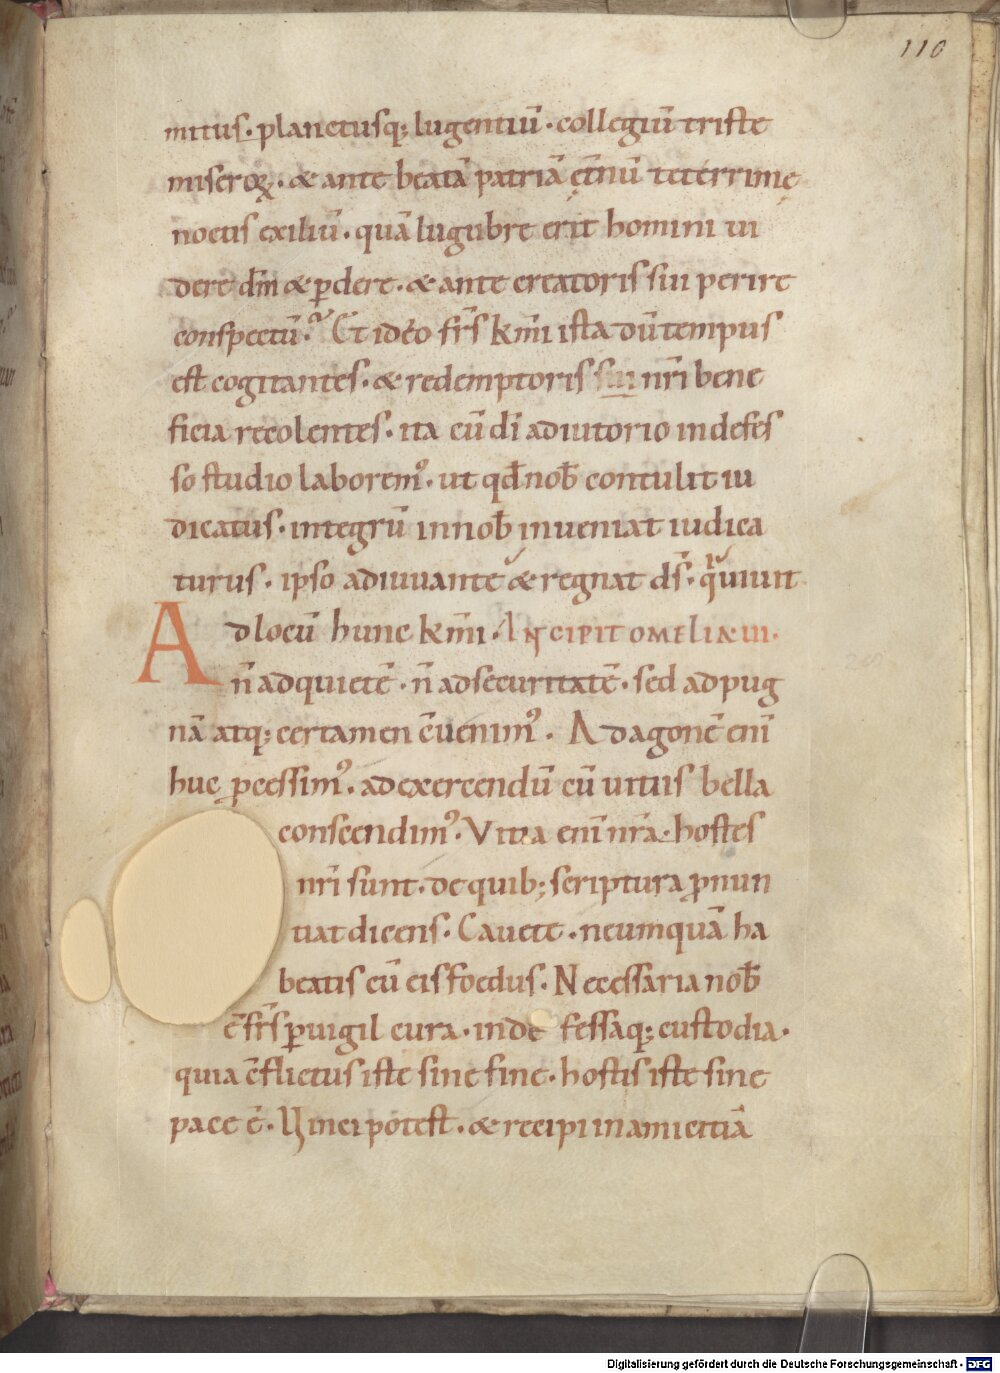 110
mitus · planctusq; lugentiū · collegiū triste
miseroꝝ · & ante beatā patriā ęt̄nū teterrimę
noctis exiliū · quā lugubre erit homini ui
dere dn̄m & ꝑdere · & ante creatoris sui perire
conspectū · Et ideo fr̄s km̄i ista dū tempus
est cogitantes · & redemptoris sui nr̄i bene
ficia recolentes · ita cū dī adiutorio indefes
so studio laborem᾽ · ut qđ nob̄ contulit iu
dicatus · integrū in nob̄ inueniat iudica
turus · ipso adiuuante & regnat ds̄ · q̄ uiuit
Ad locū hunc km̄i · INCIPIT OMELIAE III ·
n̄ ad quietē · n̄ ad securitatē · sed ad pug
nā atq; certamen c̄uenim᾽ · Ad agonē eni᷒
huc ꝓcessim᾽ · ad exercendū cū uitiis bella
conscendim᾽ · Vitia eni᷒ nr̄a · hostes
nr̄i sunt · de quib; scriptura ꝓnun
tiat dicens · Cauete · ne umquā ha
beatis cū eis foedus · Necessaria nob̄
ē fr̄s ꝑuigil cura · inde fessaq; custodia ·
quia c̄flictus iste sine fine · hostis iste sine
pace ē · Uinci potest · & recipi in amicitiā
Digitalisierung gefördert durch die Deutsche Forschungsgemeinschaft - DFG